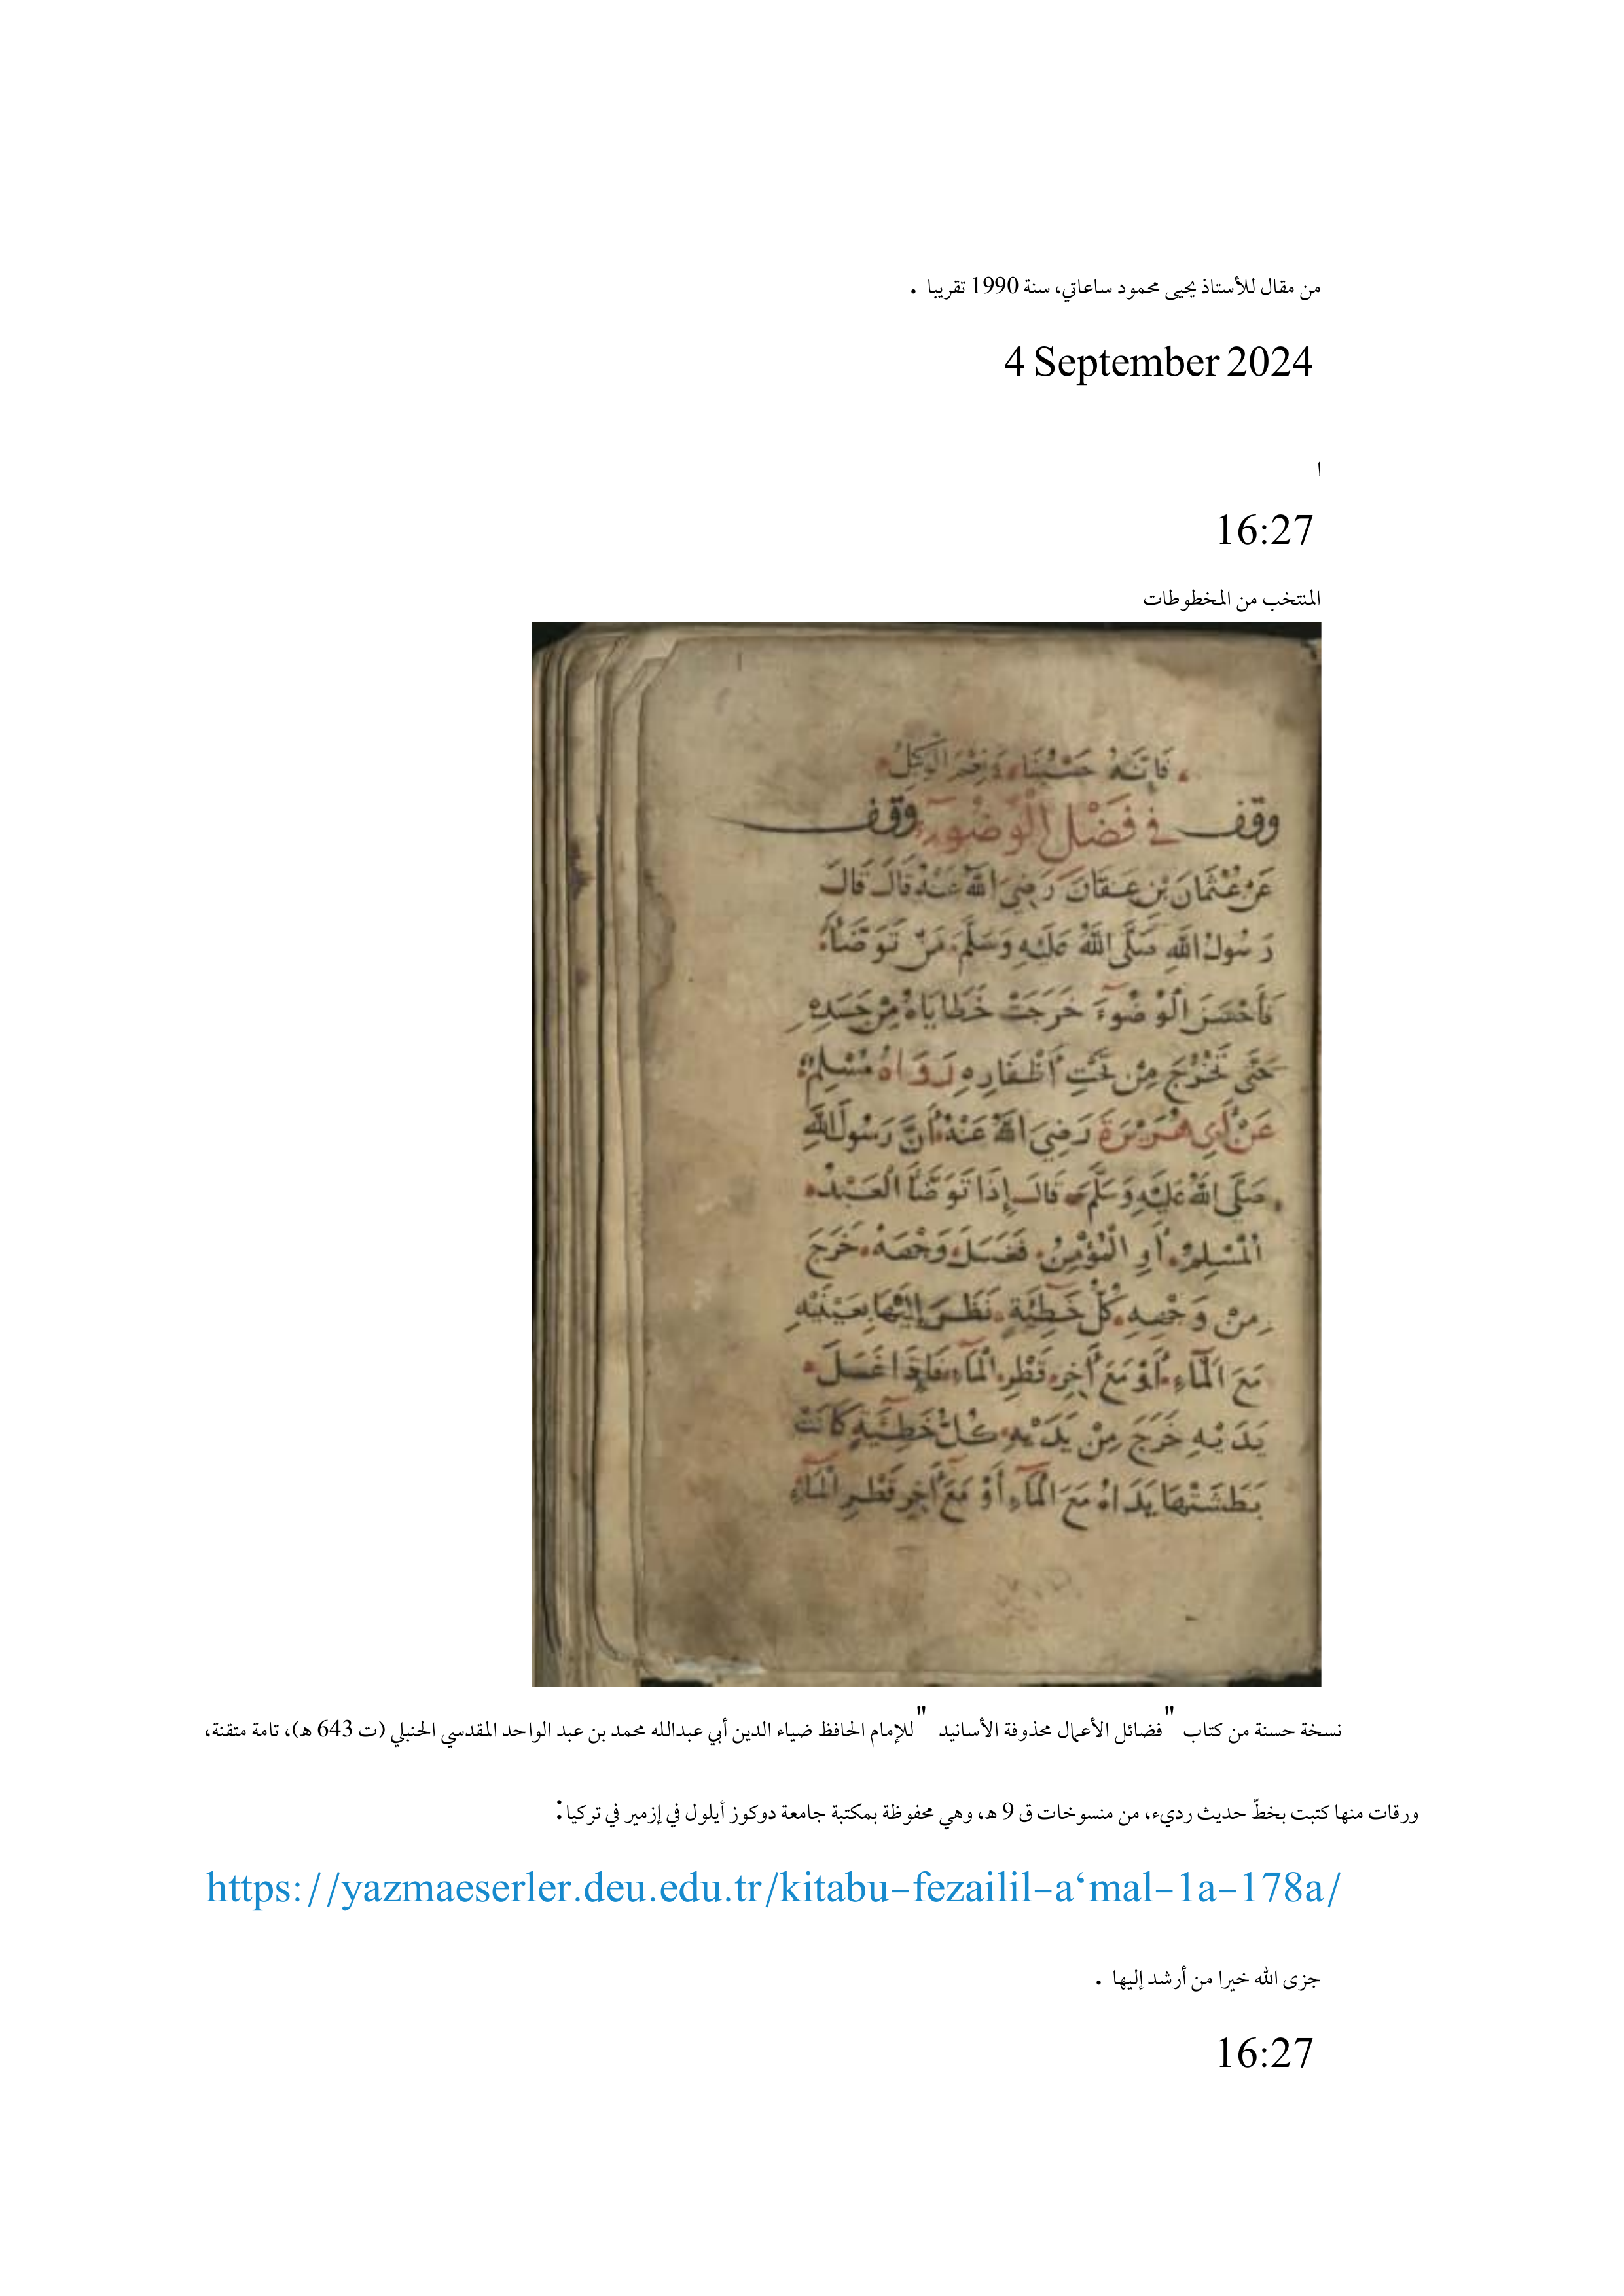 من مقال للأستاذ يحيى محمود ساعاتي، سنة 1990 تقريبا .
4 September 2024
ا
16:27
المنتخب من المخطوطات
فَإِنَّهُ حَسْبُنَا وَنِعْمَ الْوَكِيلُ
وقف في فَضْلِ الْوُضُوءِ وقف
عَنْ عُثْمَانَ بْنِ عَفَّانَ رَضِيَ اللَّهُ عَنْهُ قَالَ قَالَ
رَسُولُ اللَّهِ صَلَّى اللَّهُ عَلَيْهِ وَسَلَّمَ مَنْ تَوَضَّأَ
فَأَحْسَنَ الْوُضُوءَ خَرَجَتْ خَطَايَاهُ مِنْ جَسَدِهِ
حَتَّى تَخْرُجَ مِنْ تَحْتِ أَظْفَارِهِ رَوَاهُ مُسْلِمٌ
عَنْ أَبِي هُرَيْرَةَ رَضِيَ اللَّهُ عَنْهُ أَنَّ رَسُولَ اللَّهِ
صَلَّى اللَّهُ عَلَيْهِ وَسَلَّمَ قَالَ إِذَا تَوَضَّأَ الْعَبْدُ
الْمُسْلِمُ أَوِ الْمُؤْمِنُ فَغَسَلَ وَجْهَهُ خَرَجَ
مِنْ وَجْهِهِ كُلُّ خَطِيئَةٍ نَظَرَ إِلَيْهَا بِعَيْنَيْهِ
مَعَ الْمَاءِ أَوْ مَعَ آخِرِ قَطْرِ الْمَاءِ فَإِذَا غَسَلَ
يَدَيْهِ خَرَجَ مِنْ يَدَيْهِ كُلُّ خَطِيئَةٍ كَانَتْ
بَطَشَتْهَا يَدَاهُ مَعَ الْمَاءِ أَوْ مَعَ آخِرِ قَطْرِ الْمَاءِ
نسخة حسنة من كتاب "فضائل الأعمال محذوفة الأسانيد "للإمام الحافظ ضياء الدين أبي عبدالله محمد بن عبد الواحد المقدسي الحنبلي (ت 643 هـ)، تامة متقنة،
ورقات منها كتبت بخطّ حديث رديء، من منسوخات ق 9 هـ، وهي محفوظة بمكتبة جامعة دوكوز أيلول في إزمير في تركيا:
https://yazmaeserler.deu.edu.tr/kitabu-fezailil-a‘mal-1a-178a/
جزى الله خيرا من أرشد إليها .
16:27